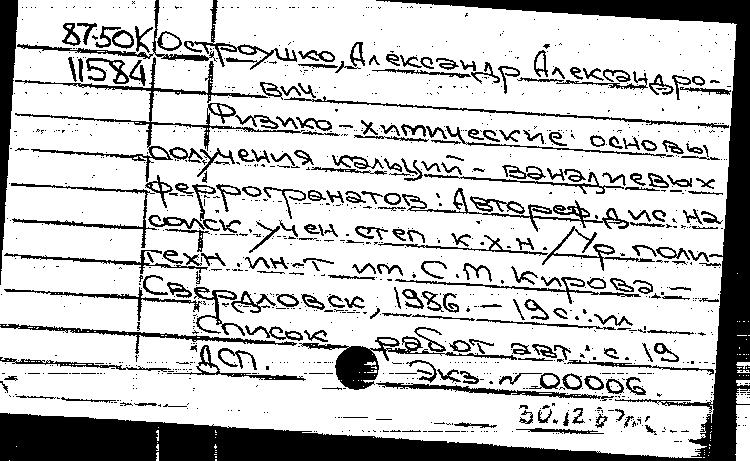 87-50К Остроушко, Александр Александро-
11584
вич.
Физико-химические основы
получения кальций-ванадиевых
феррогранатов: Автореф. дис. на
соиск. учен. степ. к.х.н. / Ур. поли-
техн. ин-т им. С.М. Кирова. -
Свердловск, 1986. - 19 с.: ил.
Список работ авт.: с. 19.
ДСП. Экз. N 00006.
30.12.87